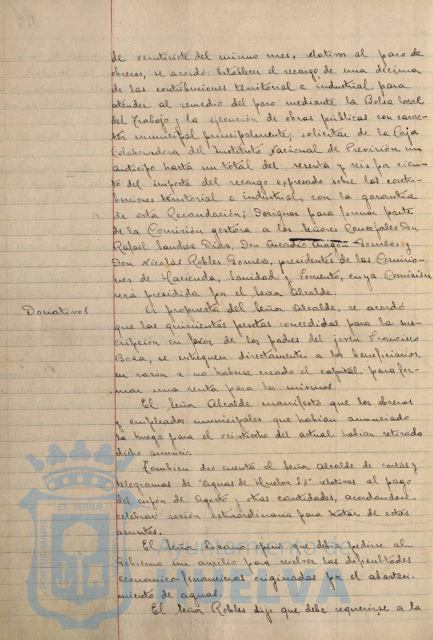 de veintisiete del mismo mes, relativos al paro de
obreros, se acordó: Establecer el recargo de una décima
de las contribuciones territorial e industrial para
atender al remedio del paro mediante la Bolsa local
del Trabajo y la ejecución de obras públicas con carac-
ter municipal principalmente; solicitar de la Caja
Colaboradora del Instituto Nacional de Previsión un
anticipo hasta un total del sesenta y seis por cien-
to del importe del recargo expresado sobre las contri-
buciones territorial e industrial, con la garantía
de esta Recaudación; Designar para formar parte
de la Comisión gestora a los Señores Concejales Don
Rafael Sanchez Diaz, Don Arcadio Aragón Gomez y
Don Nicolás Robles Gomez, presidentes de las Comisio-
nes de Hacienda, Sanidad y Fomento, cuya Comisión
será presidida por el Señor Alcalde.
Donativos
A propuesta del Señor Alcalde, se acordó
que las quinientas pesetas concedidas para la sus-
cripción en favor de los padres del joven Francisco
Boza, se entreguen directamente a los beneficiarios,
en razon a no haberse creado el capital para for-
mar una renta para los mismos.
El Señor Alcalde manifestó que los obreros
y empleados municipales que habian anunciado
la huelga para el veintiocho del actual habian retirado
dicho anuncio.
Tambien dio cuenta el Señor Alcalde de cartas y
telegramas de "Aguas de Huelva S.A" relativos al pago
del cupón de Agosto y otras cantidades, acordandose
celebrar sesión extraordinaria para tratar de estos
asuntos.
El Señor opinó que debia pedirse al
Gobierno un auxilio para resolver las dificultades
economico-financieras originadas por el abasteci-
miento de aguas.
El Señor Robles dijo que debe requerirse a la
Ayuntamiento de
HUELVA